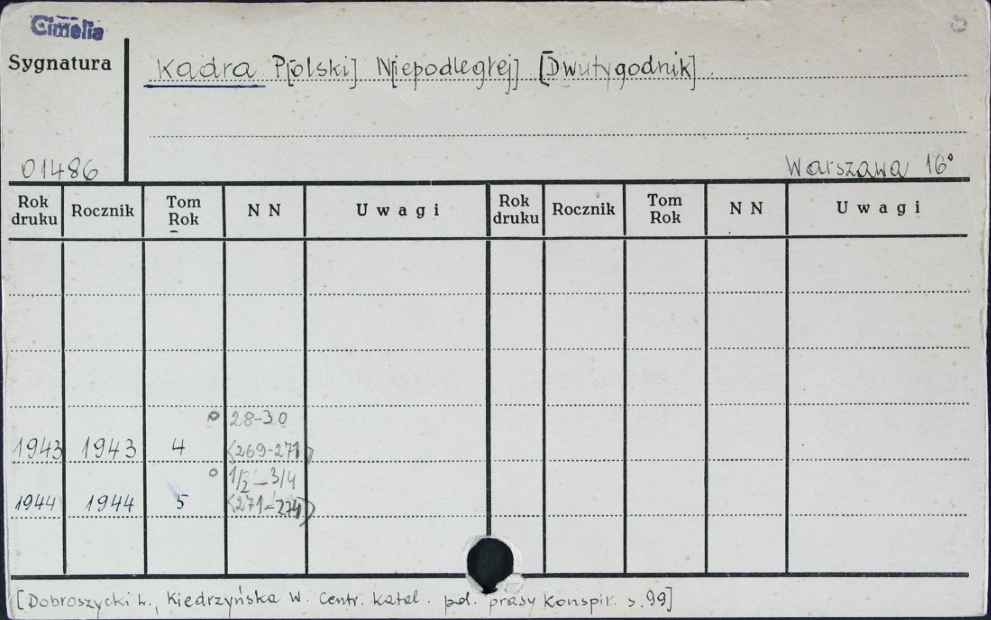 Cimelia
Sygnatura
Kadra P[olski] N[iepodległej] [Dwutygodnik]
01486
Warszawa 16°
Rok druku Rocznik Tom Rok N N Uwagi Rok druku Rocznik Tom Rok N N Uwagi
28-30
1943 1943 4 (269-271)
1/2 - 3/4
1944 1944 5 (271-274)
[Dobroszycki L., Kiedrzyńska W. Centr. katal. pol. prasy konspir. s. 99]